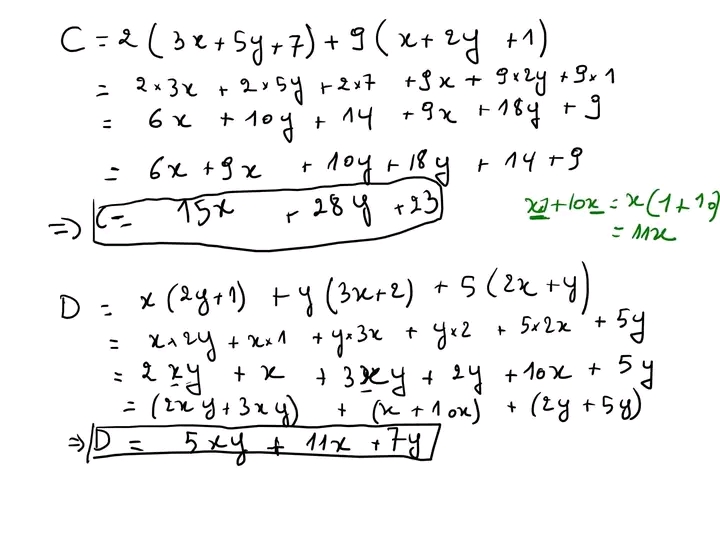 C = 2 ( 3x + 5y + 7 ) + 9 ( x + 2y + 1 )
= 2 × 3x + 2 × 5y + 2 × 7 + 9x + 9 × 2y + 9 × 1
= 6x + 10y + 14 + 9x + 18y + 9
= 6x + 9x + 10y + 18y + 14 + 9
=> C = 15x + 28y + 23
x1 + 10x = x ( 1 + 10 )
= 11x
D = x ( 2y + 1 ) + y ( 3x + 2 ) + 5 ( 2x + y )
= x × 2y + x × 1 + y × 3x + y × 2 + 5 × 2x + 5y
= 2xy + x + 3xy + 2y + 10x + 5y
= (2xy + 3xy) + (x + 10x) + (2y + 5y)
=> D = 5xy + 11x + 7y